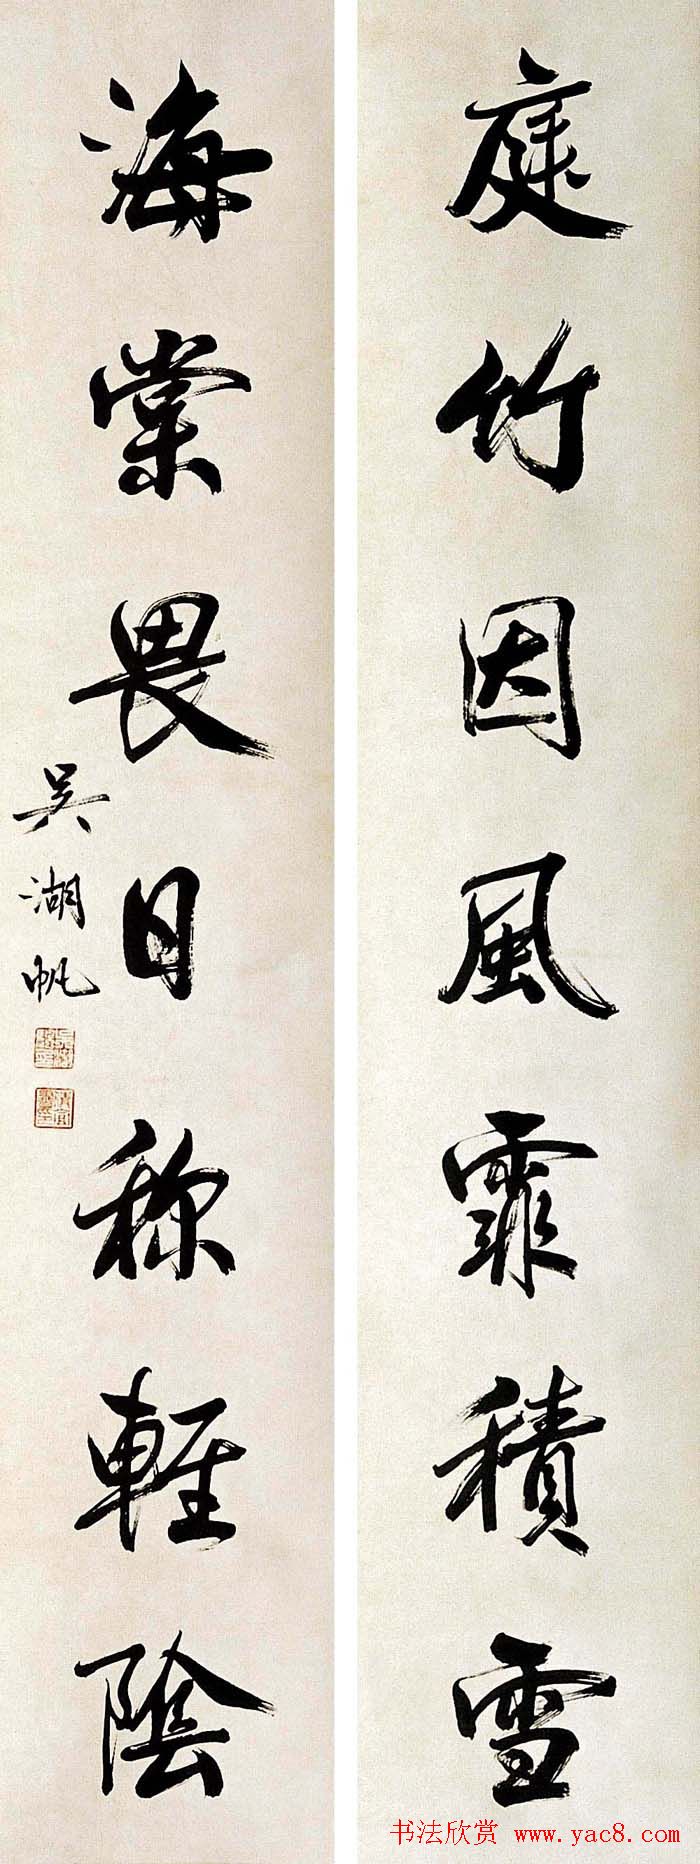 庭竹因風霏積雪
海棠畏日稱輕陰
吳湖帆
书法欣赏 www.yac8.com